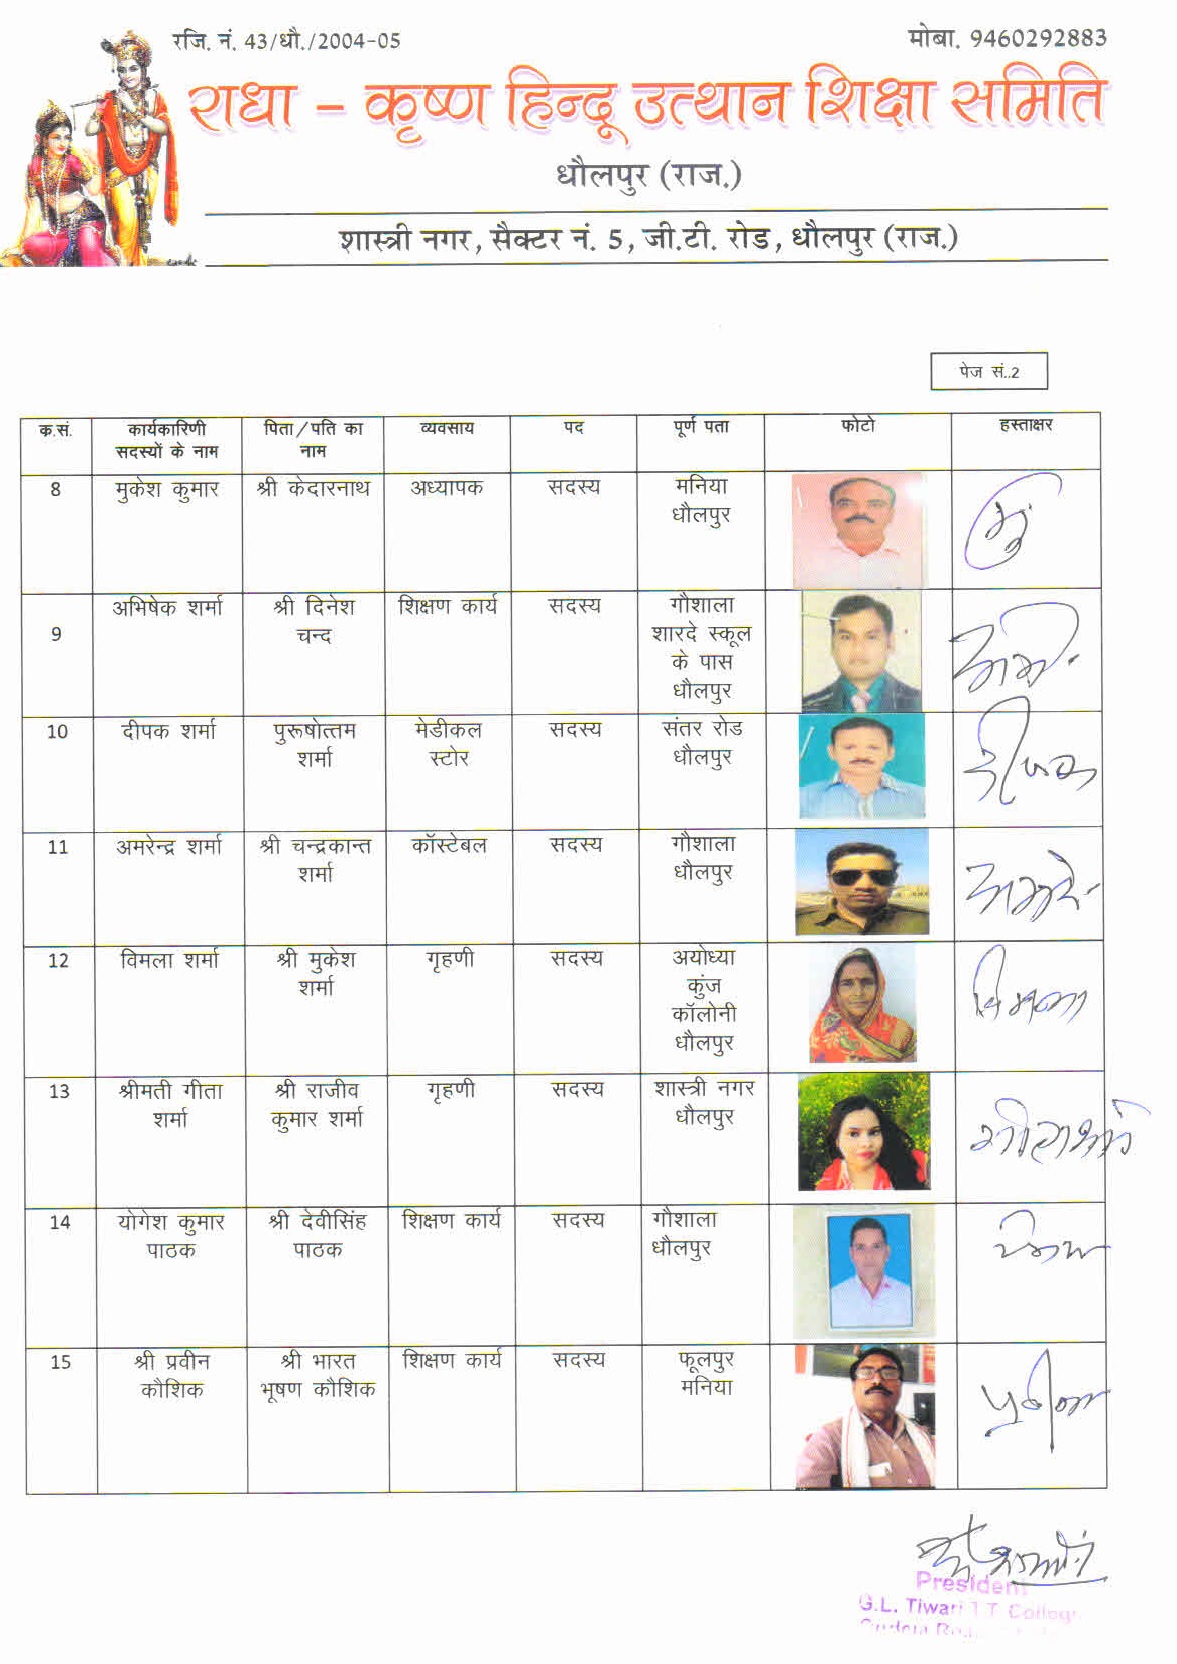 रजि. नं. 43/धौ./2004-05
मोबा. 9460292883
राधा - कृष्ण हिन्दू उत्थान शिक्षा समिति
धौलपुर (राज.)
शास्त्री नगर, सैक्टर नं. 5, जी.टी. रोड, धौलपुर (राज.)
पेज सं..2
क.सं. कार्यकारिणी सदस्यों के नाम पिता/पति का नाम व्यवसाय पद पूर्ण पता फोटो हस्ताक्षर
8 मुकेश कुमार श्री केदारनाथ अध्यापक सदस्य मनिया धौलपुर मु
9 अभिषेक शर्मा श्री दिनेश चन्द शिक्षण कार्य सदस्य गौशाला शारदे स्कूल के पास धौलपुर
10 दीपक शर्मा पुरूषोत्तम शर्मा मेडीकल स्टोर सदस्य संतर रोड धौलपुर दीपक
11 अमरेन्द्र शर्मा श्री चन्द्रकान्त शर्मा कॉस्टेबल सदस्य गौशाला धौलपुर
12 विमला शर्मा श्री मुकेश शर्मा गृहणी सदस्य अयोध्या कुंज कॉलोनी धौलपुर विमला
13 श्रीमती गीता शर्मा श्री राजीव कुमार शर्मा गृहणी सदस्य शास्त्री नगर धौलपुर
14 योगेश कुमार पाठक श्री देवीसिंह पाठक शिक्षण कार्य सदस्य गौशाला धौलपुर
15 श्री प्रवीन कौशिक श्री भारत भूषण कौशिक शिक्षण कार्य सदस्य फूलपुर मनिया
President
G.L. Tiwari T.T. College